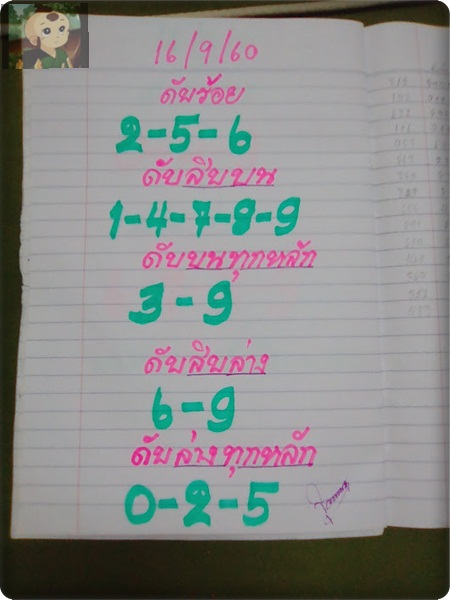 16/9/60
ดับร้อย
2-5-6
ดับสิบบน
1-4-7-8-9
ดับบนทุกหลัก
3-9
ดับสิบล่าง
6-9
ดับล่างทุกหลัก
0-2-5